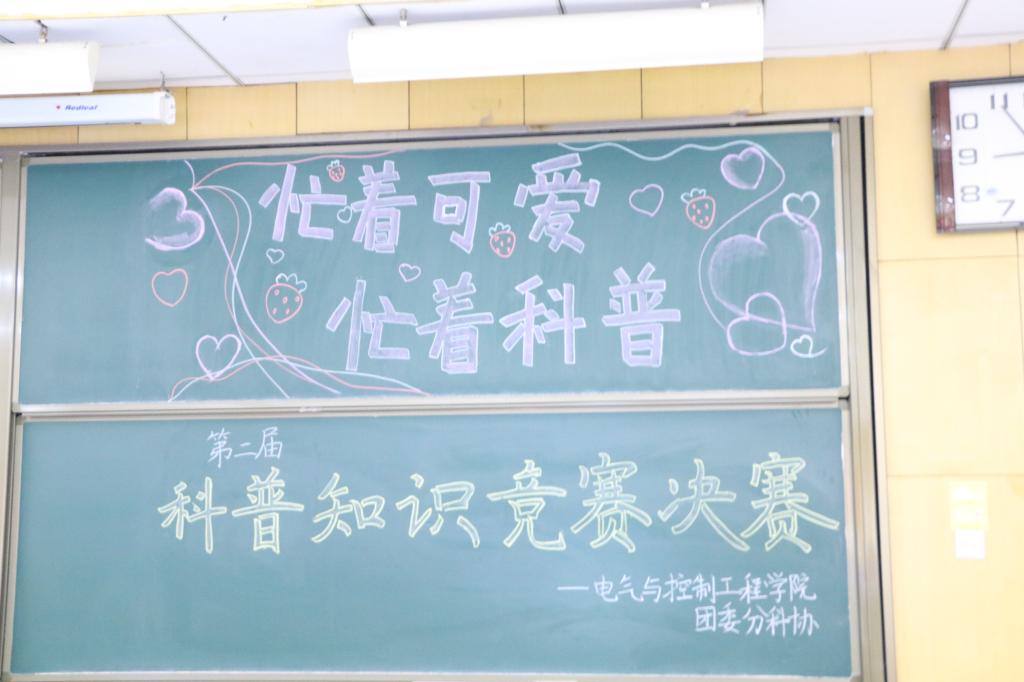 Redleaf
忙着可爱
忙着科普
第二届
科普知识竞赛决赛
—电气与控制工程学院
团委分科协
11
10
9
8
7